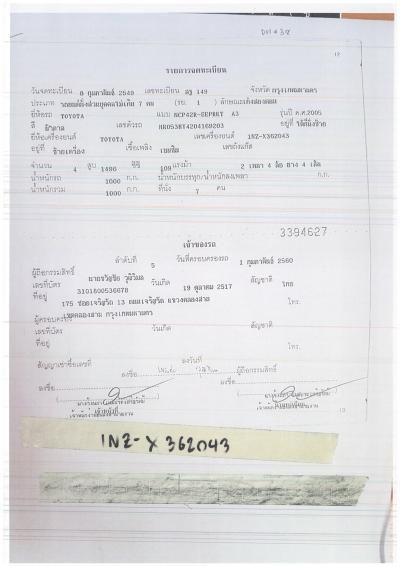 DVI # 318
12
รายการจดทะเบียน
วันจดทะเบียน 8 กุมภาพันธ์ 2549 เลขทะเบียน 149 จังหวัด กรุงเทพมหานคร
ประเภท รถยนต์นั่งส่วนบุคคลไม่เกิน 7 คน (รย. 1 ) ลักษณะ
ยี่ห้อรถ TOYOTA แบบ NCP42R-EEPRKT A3 รุ่นปี ค.ศ.2005
สี เลขตัวรถ MR053BT4204169203 อยู่ที่
ยี่ห้อเครื่องยนต์ TOYOTA เลขเครื่องยนต์ 1NZ-X362043
อยู่ที่ ซ้ายเครื่อง เชื้อเพลิง เบนซิน เลขถังแก๊ส
จำนวน 4 สูบ 1496 ซีซี 109 แรงม้า 2 เพลา 4 ล้อ ยาง 4 เส้น
น้ำหนักรถ 1000 ก.ก. น้ำหนักบรรทุก/น้ำหนักลงเพลา ก.ก.
น้ำหนักรวม 1000 ก.ก. ที่นั่ง 7 คน
3394627
เจ้าของรถ
ลำดับที่ 5 วันที่ครอบครองรถ 1 กุมภาพันธ์ 2560
ผู้ถือกรรมสิทธิ์
เลขที่บัตร 3101800536678 วันเกิด 19 ตุลาคม 2517 สัญชาติ ไทย
ที่อยู่ 175 ซอยเจริญรัถ 13 ถนนเจริญรัถ แขวงคลองสาน โทร.
ผู้ครอบครอง เขตคลองสาน กรุงเทพมหานคร
เลขที่บัตร วันเกิด สัญชาติ
ที่อยู่ โทร.
สัญญาเช่าซื้อเลขที่ ลงวันที่
ลงชื่อ ลงชื่อ ผู้ถือกรรมสิทธิ์
13
1NZ-X 362043